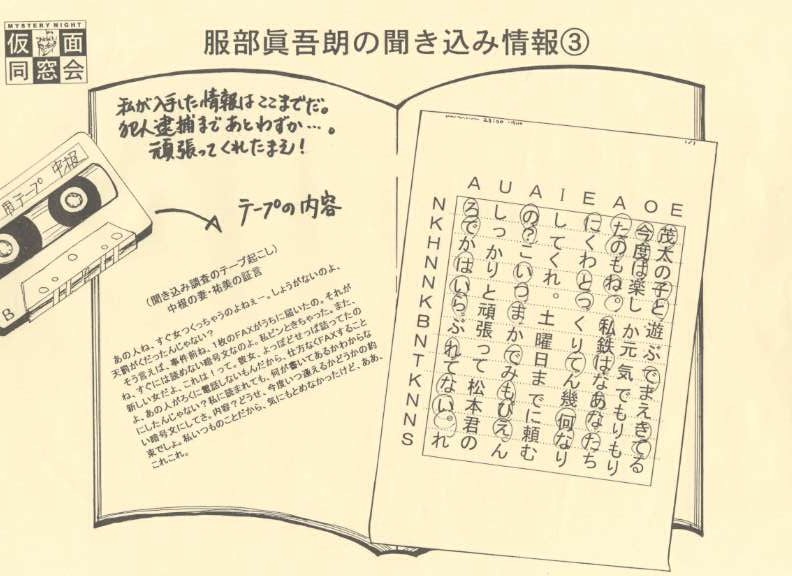 MYSTERY NIGHT
仮面
同窓会
服部眞吾朗の聞き込み情報③
私が入手した情報はここまでだ。
犯人逮捕まであとわずか…。
頑張ってくれたまえ!
用テープ 中根
B
テープの内容
(聞き込み調査のテープ起こし)
中根の妻・祐美の証言
あの人ね、すぐ女つくっちゃうのよねぇー。しょうがないのよ、
天罰がくだったんじゃない?
そう言えば、事件前ね、1枚のFAXがうちに届いたの。それが
ね、すぐには読めない暗号文なのよ。私ピンときちゃった。また、
新しい女だよ、これは!って。彼女、よっぽどせっぱ詰ってたの
よ、あの人がろくに電話しないもんだから、仕方なくFAXすること
にしたんじゃない?私に読まれても、何が書いてあるかわからな
い暗号文にしてさ。内容?どうせ、今度いつ逢えるかどうかの約
束でしょ。私いつものことだから、気にもとめなかったけど、ああ、
これこれ。
A U A I E A O E
茂太の子と遊ぶでまえきてる
今度は楽しか元気でもりもり
たのもね。私鉄はなあなたち
にくわとっくりてん幾何なり
してくれ。土曜日までに頼む
の?こいうまかでみもびえ。ん
しっかりと頑張って松本君の
ろでかはいらぶれてない。れ
N K H N N K B N T K N N S